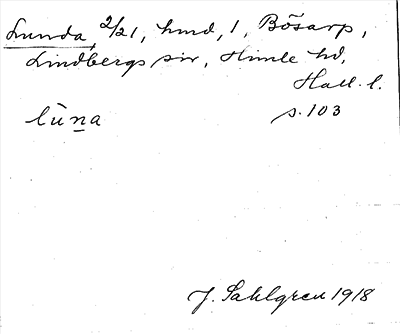 Lunda, 2/21, hmd, 1, Bösarp,
Lindbergs sn, Himle hd,
Hall. l.
lùna s. 103
J. Sahlgren 1918